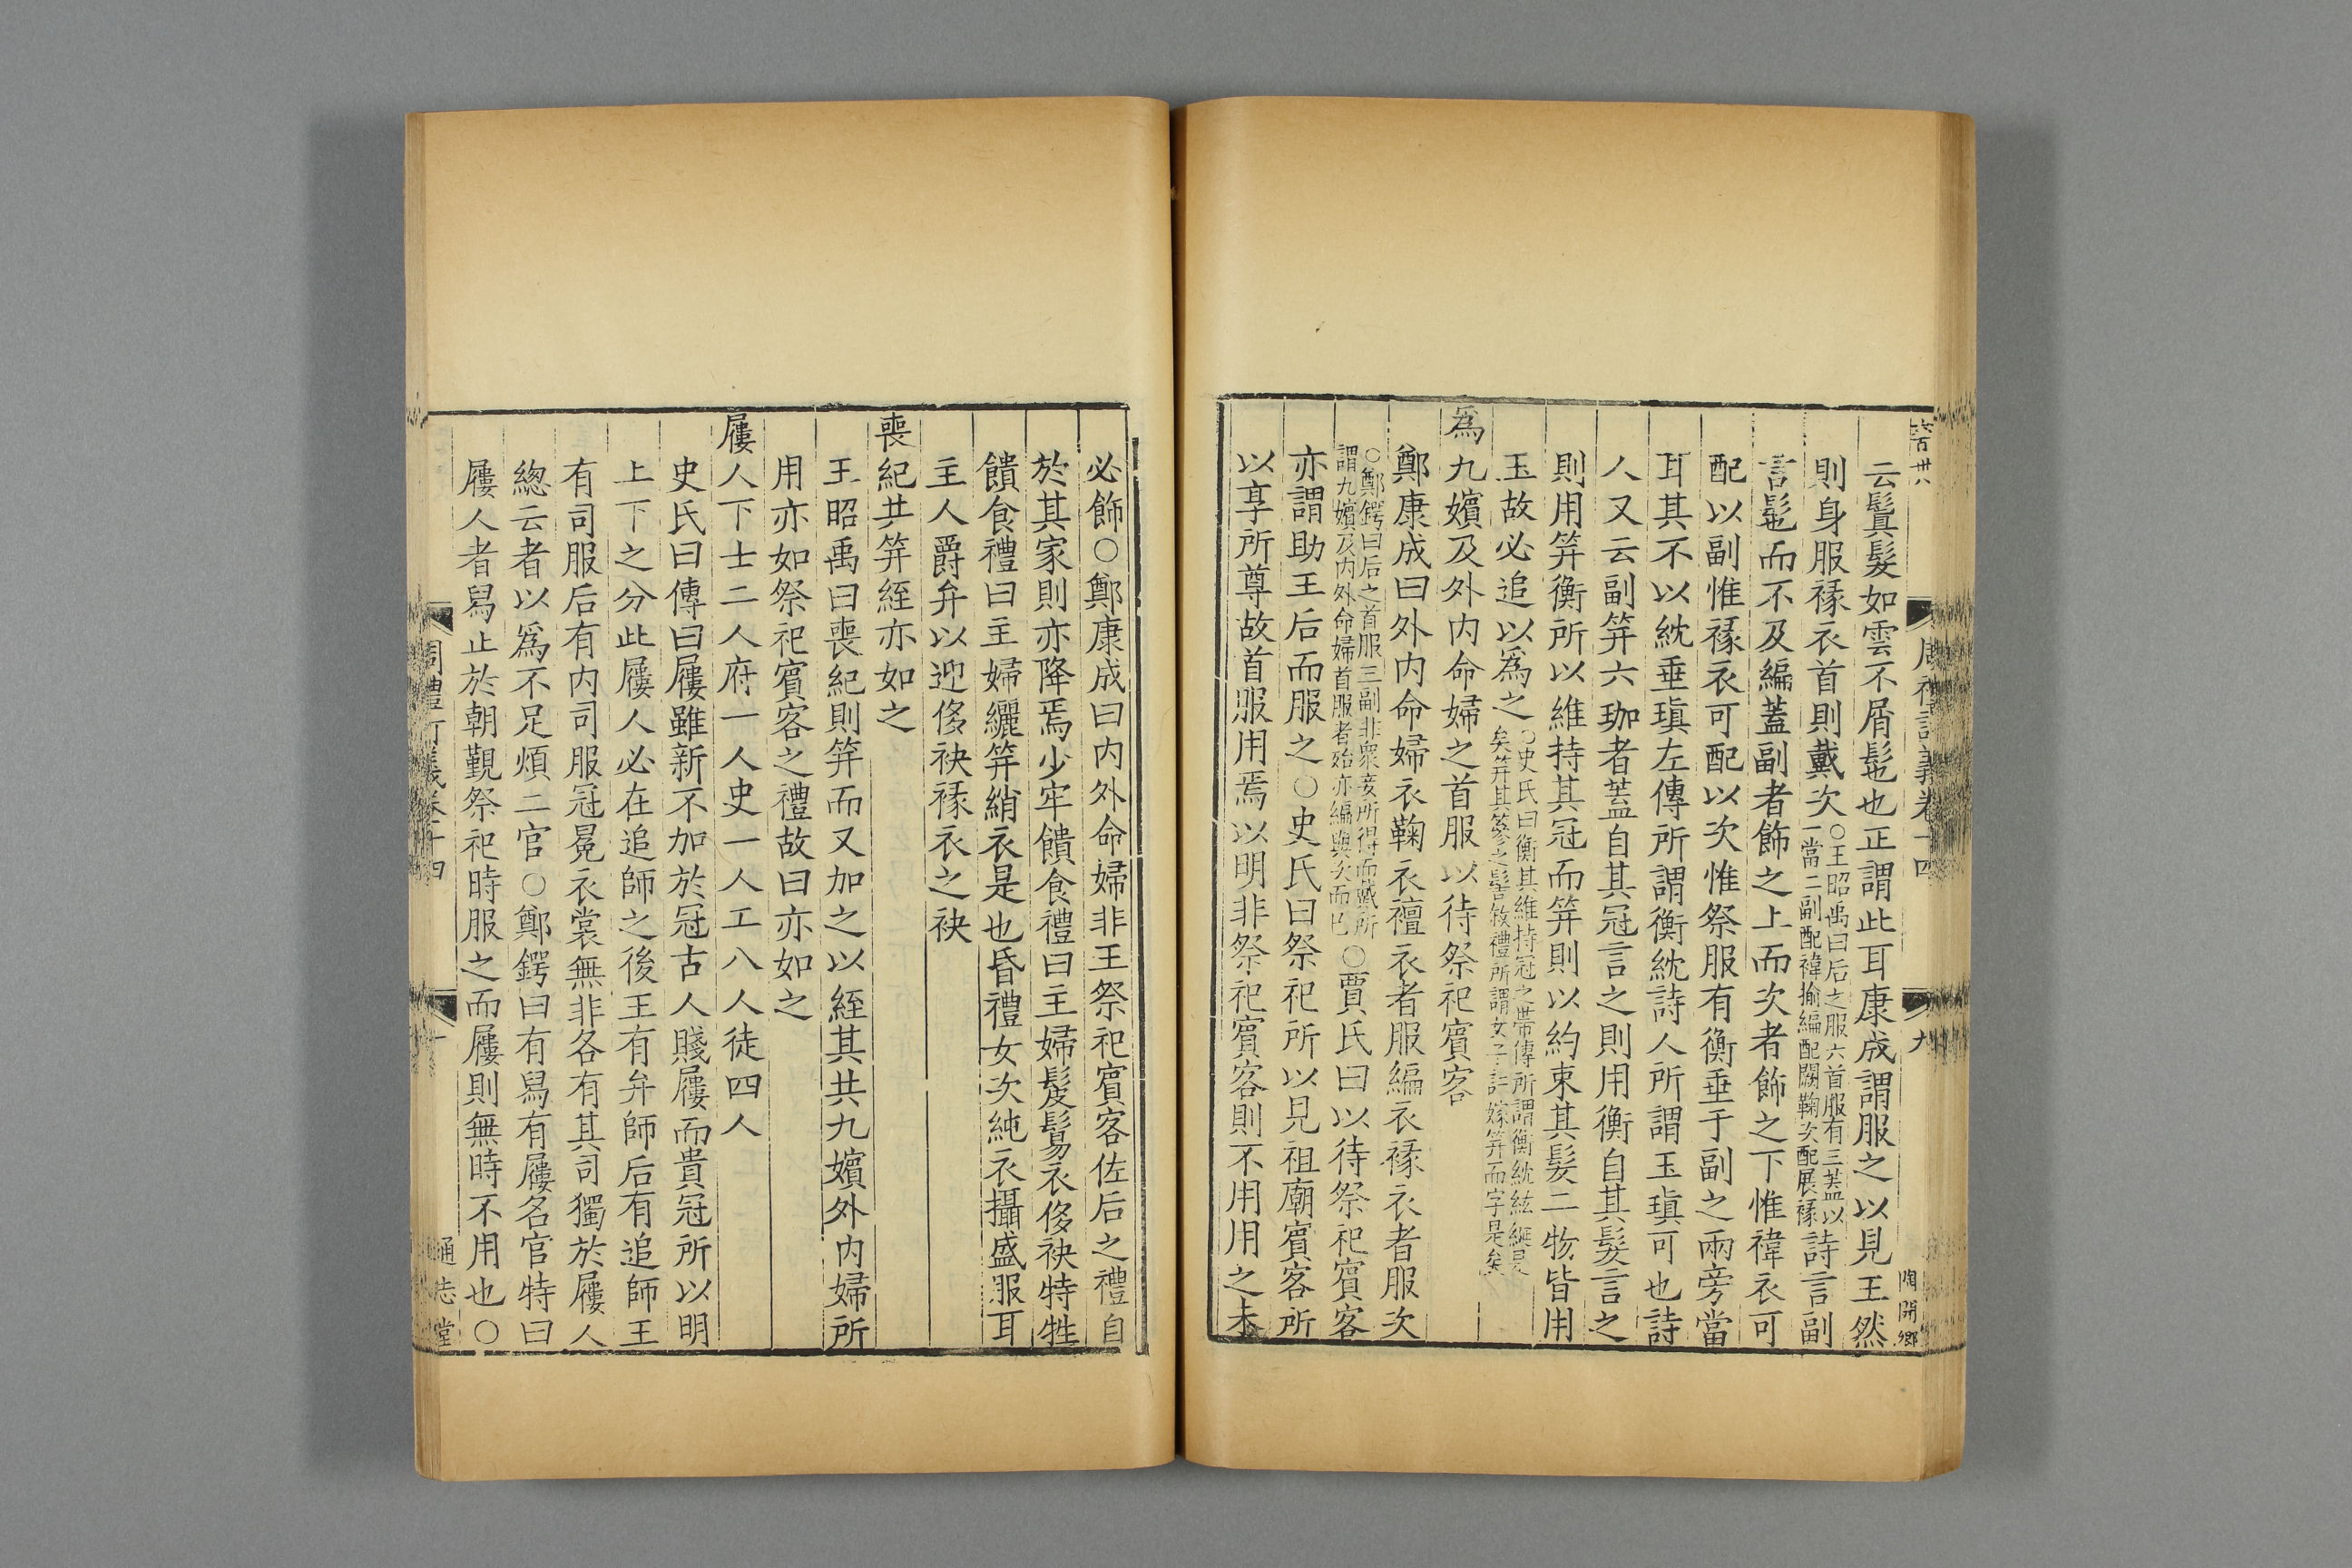 云鬒髮如雲不屑髢也正謂此耳康成謂服之以見王然
則身服褖衣首則戴次○王昭禹曰后之服六首服有三蓋以一當二副配褘揄編配闕鞠次配展褖詩言副
言髢而不及編蓋副者飾之上而次者飾之下惟褘衣可
配以副惟褖衣可配以次惟祭服有衡垂于副之兩旁當
耳其不以紞垂瑱左傳所謂衡紞詩人所謂玉瑱可也詩
人又云副笄六珈者蓋自其冠言之則用衡自其髮言之
則用笄衡所以維持其冠而笄則以約束其髮二物皆用
玉故必追以為之○史氏曰衡其維持冠之帶傳所謂衡紞紘綖是矣笄其簪之髻敘禮所謂女子許嫁笄而字是矣
為九嬪及外內命婦之首服以待祭祀賓客
鄭康成曰外內命婦衣鞠衣襢衣者服編衣褖衣者服次
○鄭鍔曰后之首服三副非衆妾所得而戴所謂九嬪及內外命婦首服者殆亦編與次而已○賈氏曰以待祭祀賓客
亦謂助王后而服之○史氏曰祭祀所以見祖廟賓客所
以享所尊故首服用焉以明非祭祀賓客則不用用之未
周禮訂義卷十四
九
陶開鄉
必飾○鄭康成曰內外命婦非王祭祀賓客佐后之禮自
於其家則亦降焉少牢饋食禮曰主婦髲鬄衣侈袂特牲
饋食禮曰主婦纚笄綃衣是也昏禮女次純衣攝盛服耳
主人爵弁以迎侈袂褖衣之袂
喪紀共笄絰亦如之
王昭禹曰喪紀則笄而又加之以絰其共九嬪外內婦所
用亦如祭祀賓客之禮故曰亦如之
屨人下士二人府一人史一人工八人徒四人
史氏曰傳曰屨雖新不加於冠古人賤屨而貴冠所以明
上下之分此屨人必在追師之後王有弁師后有追師王
有司服后有內司服冠冕衣裳無非各有其司獨於屨人
總云者以為不足煩二官○鄭鍔曰有舄有屨名官特曰
屨人者舄止於朝覲祭祀時服之而屨則無時不用也○
周禮訂義卷十四
十
通志堂